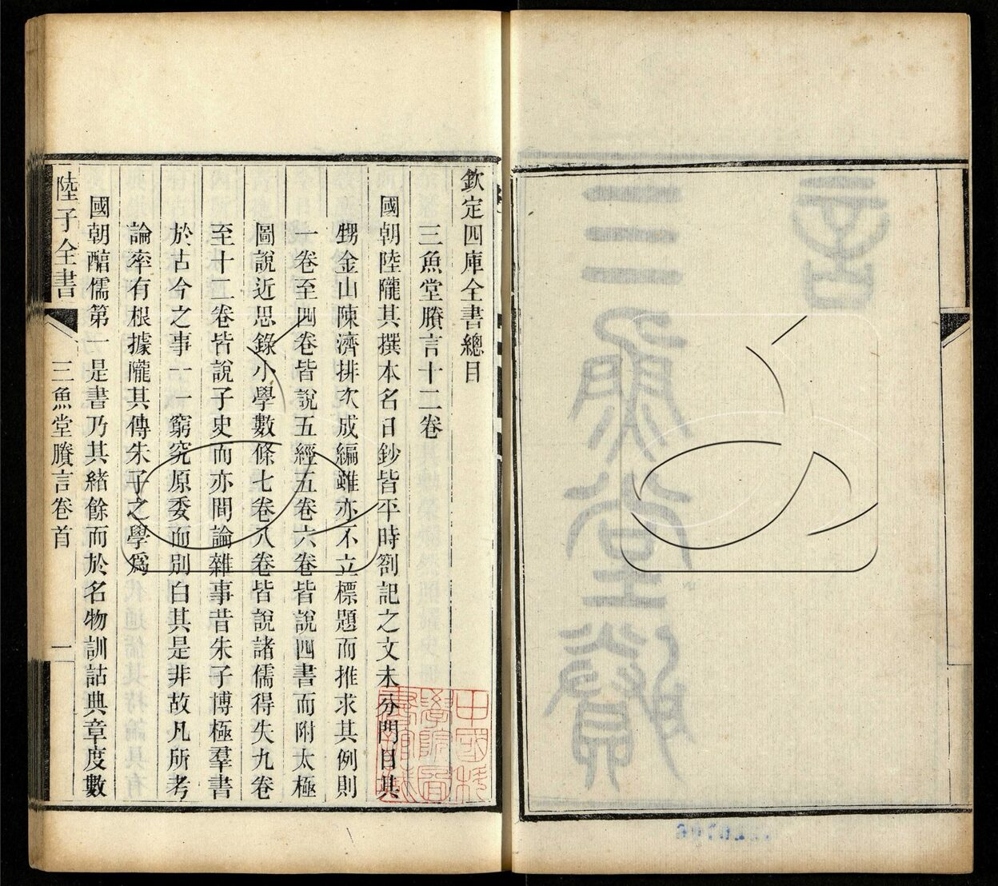 欽定四庫全書總目
三魚堂賸言十二卷
國朝陸隴其撰本名日鈔皆平時劄記之文未分門目其
甥金山陳濟排次成編雖亦不立標題而推求其例則
一卷至四卷皆說五經五卷六卷皆說四書而附太極
圖說近思錄小學數條七卷八卷皆說諸儒得失九卷
至十二卷皆說子史而亦間論雜事昔朱子博極羣書
於古今之事一一窮究原委而別白其是非故凡所考
論率有根據隴其傳朱子之學為
國朝醇儒第一是書乃其緒餘而於名物訓詁典章度數
陸子全書 三魚堂賸言卷首 一
中國科
學院圖
書館藏